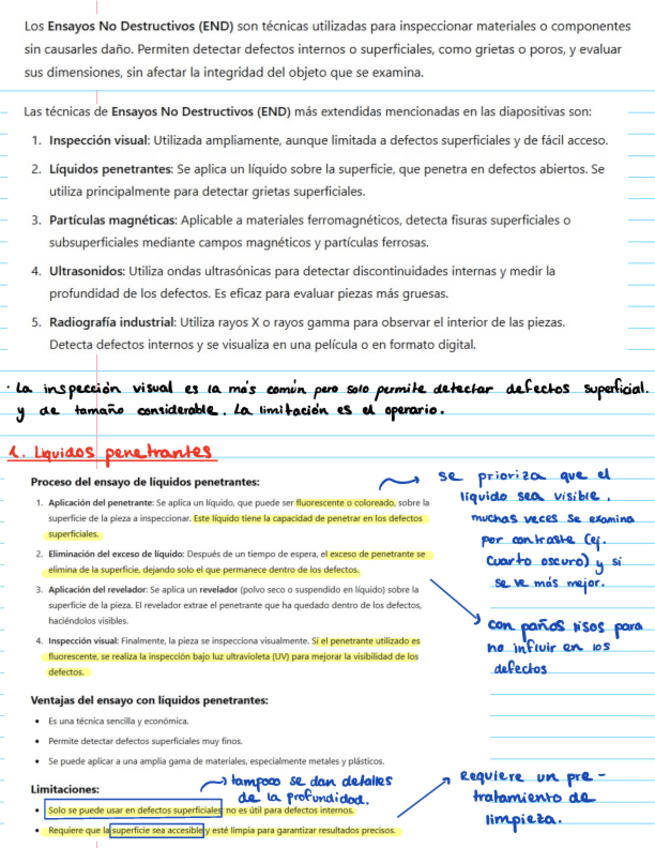 Los Ensayos No Destructivos (END) son técnicas utilizadas para inspeccionar materiales o componentes
sin causarles daño. Permiten detectar defectos internos o superficiales, como grietas o poros, y evaluar
sus dimensiones, sin afectar la integridad del objeto que se examina.
Las técnicas de Ensayos No Destructivos (END) más extendidas mencionadas en las diapositivas son:
1. Inspección visual: Utilizada ampliamente, aunque limitada a defectos superficiales y de fácil acceso.
2. Líquidos penetrantes: Se aplica un líquido sobre la superficie, que penetra en defectos abiertos. Se
utiliza principalmente para detectar grietas superficiales.
3. Partículas magnéticas: Aplicable a materiales ferromagnéticos, detecta fisuras superficiales o
subsuperficiales mediante campos magnéticos y partículas ferrosas.
4. Ultrasonidos: Utiliza ondas ultrasónicas para detectar discontinuidades internas y medir la
profundidad de los defectos. Es eficaz para evaluar piezas más gruesas.
5. Radiografía industrial: Utiliza rayos X o rayos gamma para observar el interior de las piezas.
Detecta defectos internos y se visualiza en una película o en formato digital.
· La inspección visual es la más común pero solo permite detectar defectos superficial.
y de tamaño considerable. La limitación es el operario.
1. Liquidos penetrantes
Proceso del ensayo de líquidos penetrantes:
1. Aplicación del penetrante: Se aplica un líquido, que puede ser fluorescente o coloreado, sobre la
superficie de la pieza a inspeccionar. Este líquido tiene la capacidad de penetrar en los defectos
superficiales.
2. Eliminación del exceso de líquido: Después de un tiempo de espera, el exceso de penetrante se
elimina de la superficie, dejando solo el que permanece dentro de los defectos.
3. Aplicación del revelador: Se aplica un revelador (polvo seco o suspendido en líquido) sobre la
superficie de la pieza. El revelador extrae el penetrante que ha quedado dentro de los defectos,
haciéndolos visibles.
4. Inspección visual: Finalmente, la pieza se inspecciona visualmente. Si el penetrante utilizado es
fluorescente, se realiza la inspección bajo luz ultravioleta (UV) para mejorar la visibilidad de los
defectos.
se prioriza que el
líquido sea visible.
muchas veces se examina
por contraste (ej.
cuarto oscuro) y si
se ve más mejor.
con paños lisos para
no influir en los
defectos
Ventajas del ensayo con líquidos penetrantes:
• Es una técnica sencilla y económica.
• Permite detectar defectos superficiales muy finos.
• Se puede aplicar a una amplia gama de materiales, especialmente metales y plásticos.
Limitaciones:
tampoco se dan detalles
de la profundidad.
• Solo se puede usar en defectos superficiales; no es útil para defectos internos.
• Requiere que la superficie sea accesible y esté limpia para garantizar resultados precisos.
Requiere un pre-
tratamiento de
limpieza.